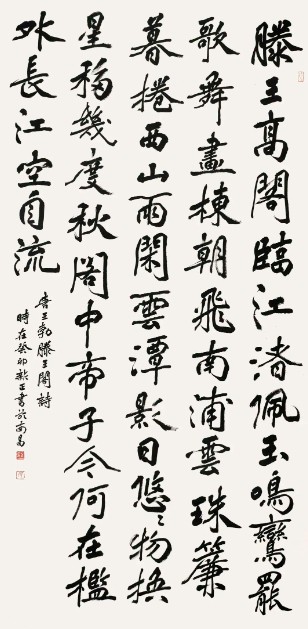 滕王高閣臨江渚佩玉鳴鸞罷
歌舞畫棟朝飛南浦雲珠簾
暮捲西山雨閑雲潭影日悠〻物換
星移幾度秋閣中帝子今何在檻
外長江空自流
唐王勃滕王閣詩
時在癸卯新正書於南昌